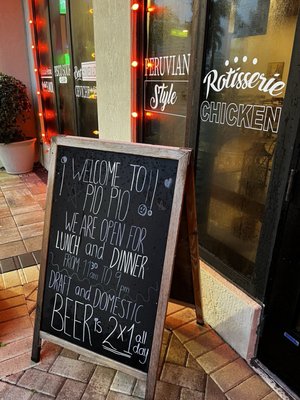 PERUVIAN
Style
Rotisserie
CHICKEN
¡WELCOME TO!!
PIO PIO
WE ARE OPEN FOR
LUNCH and DINNER
DRAFT and DOMESTIC
BEER is 2x1 all
day